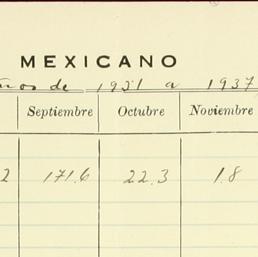 MEXICANO
años de 1921 a 1937
Septiembre Octubre Noviembre
2 171.6 22.3 1.8